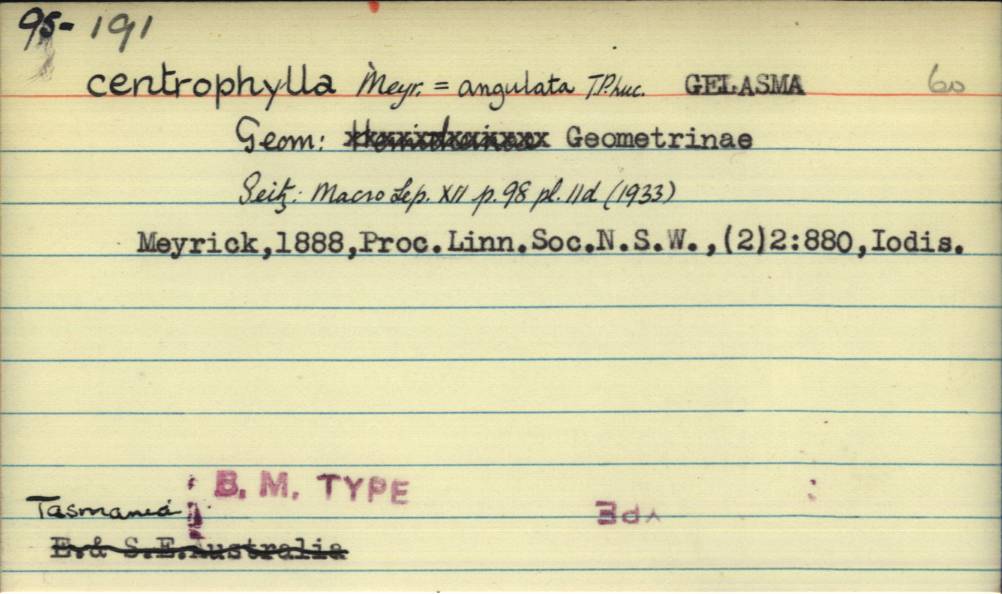 95-191
centrophylla Meyr. = angulata T.P.Luc. GELASMA 60
Geom: Geometrinae
Seitz: Macro Lep. XII p. 98 pl. 11d (1933)
Meyrick,1888,Proc.Linn.Soc.N.S.W.,(2)2:880,Iodis.
B. M. TYPE
Tasmania
E.& S.E.Australia